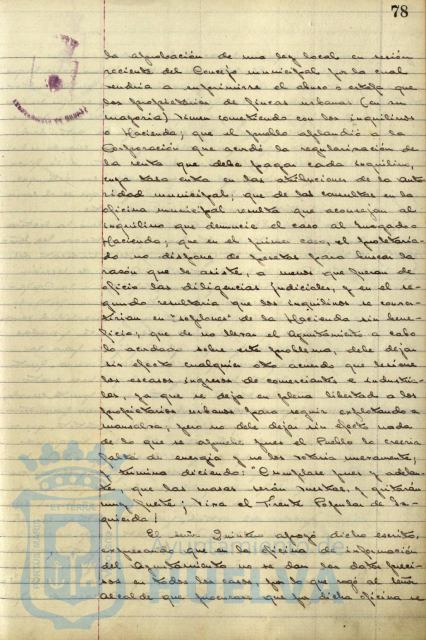 78
la aprobación de una ley local en sesión
reciente del Concejo municipal por la cual
vendría a suprimirse el abuso o estafa que
los propietarios de fincas urbanas (en su
mayoría) vienen cometiendo con los inquilinos
o Hacienda; que el pueblo aplaudió a la
Corporación que acordó la regularización de
la renta que debe pagar cada inquilino,
cuya tasa entra en las atribuciones de la auto
ridad municipal; que de las consultas en la
oficina municipal resulta que aconsejan al
inquilino que denuncie el caso al Juzgado o
Hacienda; que en el primer caso, el proletaria
do no dispone de pesetas para buscar la
razón que le asiste, a menos que fueran de
oficio las diligencias judiciales, y en el se
gundo resultaría que los inquilinos se conver
tirían en "soplones" de la Hacienda sin bene
ficio; que de no llevar el Ayuntamiento a cabo
lo acordado sobre este problema, debe dejar
sin efecto cualquier otro acuerdo que lesione
los escasos ingresos de comerciantes e industria
les, ya que se deja en plena libertad a los
propietarios urbanos para seguir explotando a
mansalva; pero no debe dejar sin efecto nada
de lo que se pues el Pueblo lo creería
falta de energía y no los votaría nuevamente,
y termina diciendo: "Cumplase pues y adelan
te, que las masas serán nuestras, y gritarán
muy fuerte; Viva el Frente Popular de Iz
quierda!
El señor Quintero apoyó dicho escrito,
expresando que en la oficina de información
del Ayuntamiento no se dan los datos preci
sos en todos los casos, por lo que rogó al señor
alcalde que procurase que por dicha oficina se